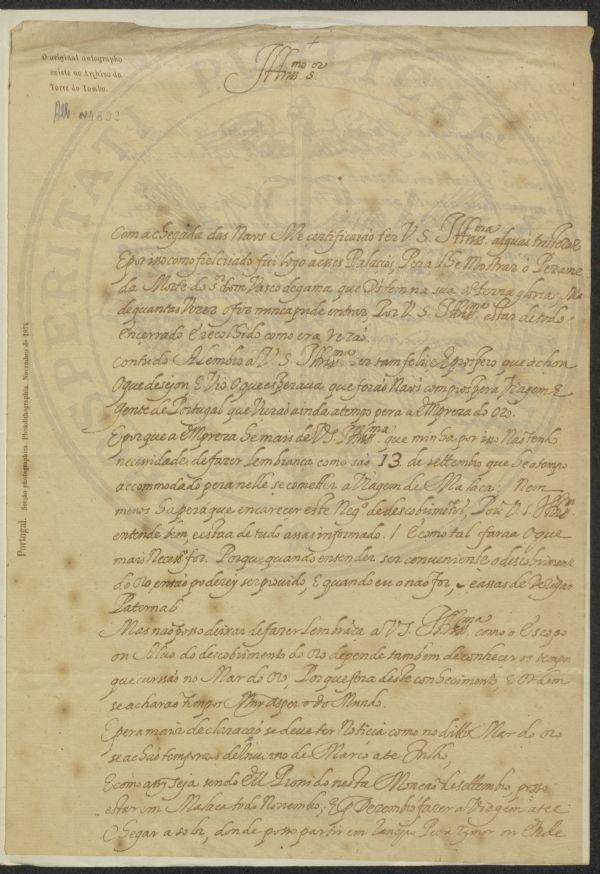 O original autographo
existe no Archivo da
Torre do Tombo.
4832
+
Illmo or
s.
Com a chegada das Naos Me certificarão ser V. S. Illma
E por isso como fiel criado fui logo a esses Palacios, Pera lhe Mostrar o Pezame
da Morte do Sor dom Vasco da gama que Ds tem na sua eterna gloria: Mas
de quantas Vezes o fiz nunca pude entrar, Por V. S. Illma estar de todo
encerrado e recolhido como era rezão
Contudo Alembro a V. S. Illma ser tam felise E prospero que achou
O que desejou E Vio O que esperava que forão Naos com prospera Viagem E
gente de Portugal que Vierão ainda a tempo pera a Empreza do Oro.
E porque a Empreza he mais de V. S. Illma que minha por isso Não tenho
necessidade de fazer Lembrança como são 13 de settembro que he o tempo
accommodado pera nelle se cometter a Viagem de Malaca: Nem
menos ha pera que encarecer este Nego de descobrimento, Pois V. S. Illma
entende bem, e esta de tudo assas informado. E como tal fara o que
mais Necesso for. Porque quando entender ser conveniente o descobrimento
do Oro, então poderey ser provido, E quando eu o não for,
Paternal
Mas não posso deixar de fazer Lembrãça a V. S. Illma como o Escopo
ou Alvo do descobrimento do Oro depende tambem de conhecer os tempos
que cursão no Mar do Oro, Porque fora deste conhecimento, E Ordem
se acharão tempos Muy asperos do Mundo.
E pera maior declaração se deve ter Noticia como no ditto Mar do Oro
se achão temporaes de Inverno de Março ate
E como assy seja sendo Eu Provido nesta Monção de settembro, posso
estar em Malaca todo Novembro, E Dezembro fazer a Viagem ate e
Chegar a Solor, donde posso partir em Janeyro Pera Tymor ou Ende
Portugal. Secção photographica. Photolithographia. Novembro de 1874
VERITATI